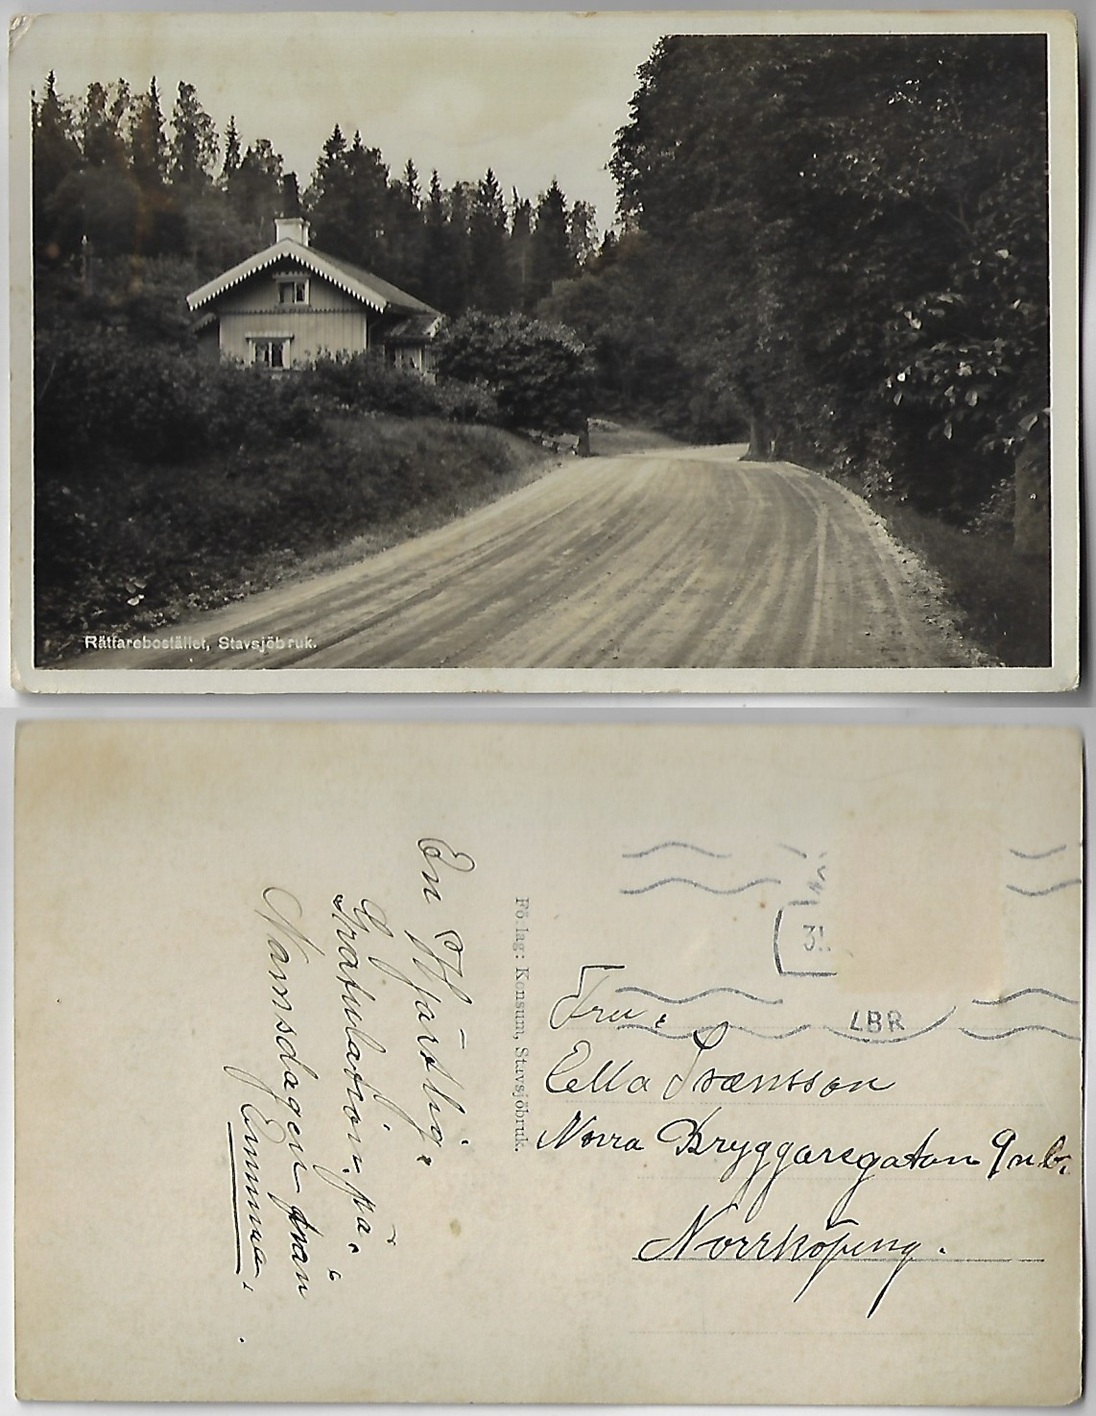 Rättarebostället, Stavsjöbruk.
31.
LBR
En Hjärtlig.
Gratulation, på.
Namsdagen från
Emma.
Förlag: Konsum, Stavsjöbruk.
Fru.
Ella Svensson
Norra Bryggaregatan 9 n.b.
Norrköping.